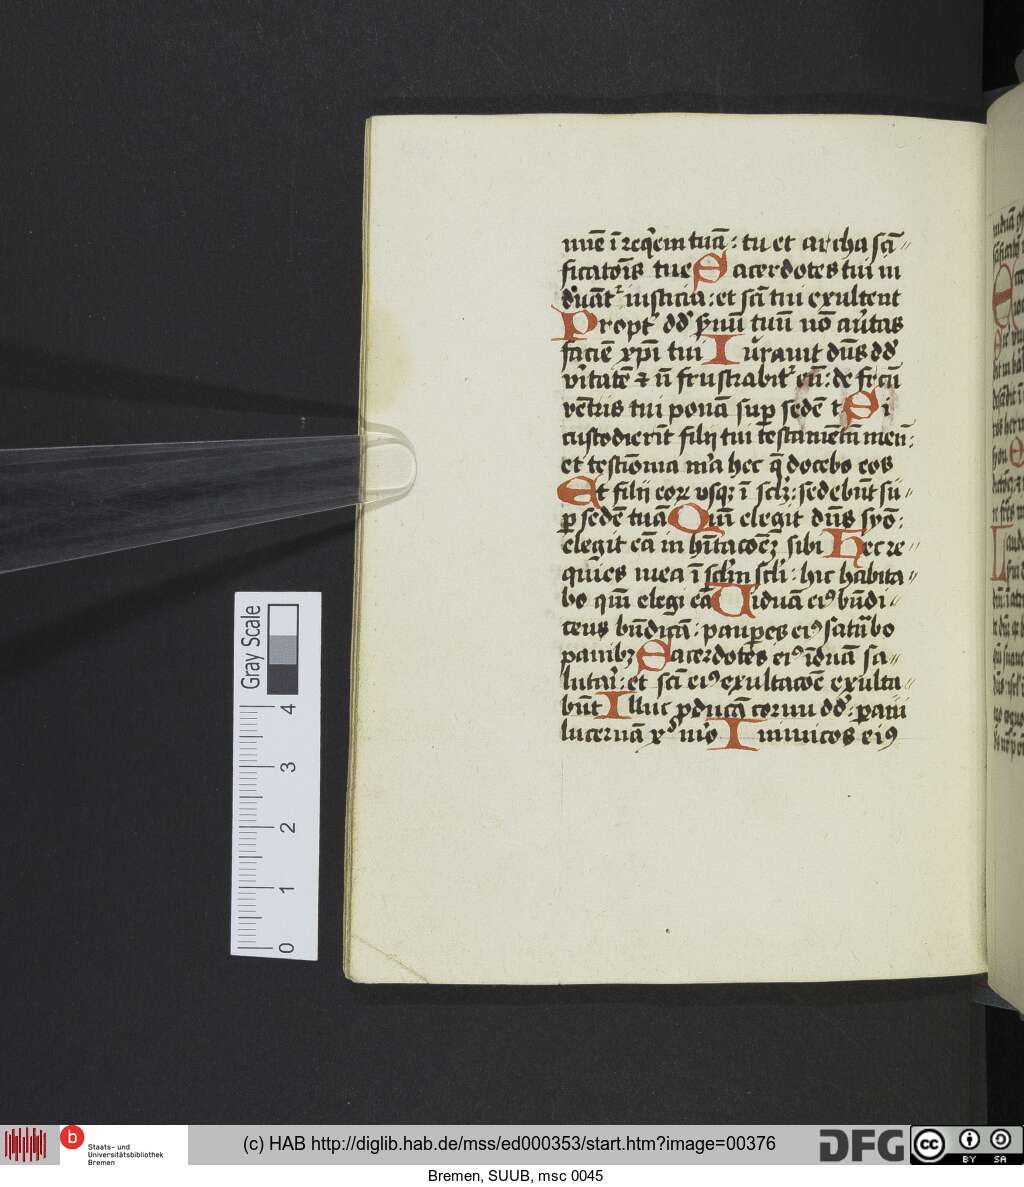 mīe ī req̄em tuā : tu et archa scī〃
ficatōis tue Sacerdotes tui in
duāt iusticiā : et scī tui exultent
Propt dd s̄uū tuū nō aūtas
faciē xp̄i tui Iurauit dūs dd
v̄itatē ⁊ n̄ frustrabit eū : de frcū
vētris tui ponā sup sedē t Si
custodierīt filij tui testamētū meū :
et testīonia m̄a hec q̄ docebo eos
Et filij eoꝝ vsqꝫ ī sclꝫ : sedebūt su〃
ꝑ sedē tuā Qm̄ elegit dūs syō :
elegit eā in hītacōeꝫ sibi Hec re〃
quies mea ī sclm̄ scl̄i : hic habita〃
bo qm̄ elegi eā Uiduā eiꝰ bn̄di〃
cens bn̄dicā : pauꝑes eiꝰ sat̄abo
panibꝫ Sacerdotes eiꝰ īduā sa〃
lutari : et scī eiꝰ exultacōe exulta〃
būt Illuc ꝓducā cornu dd : paui
lucernā xº m̄o Inimicos eiꝰ
Gray Scale
4
3
2
1
0
b Staats- und
Universitätsbibliothek
Bremen
(c) HAB http://diglib.hab.de/mss/ed000353/start.htm?image=00376
DFG
cc BY SA
Bremen, SUUB, msc 0045